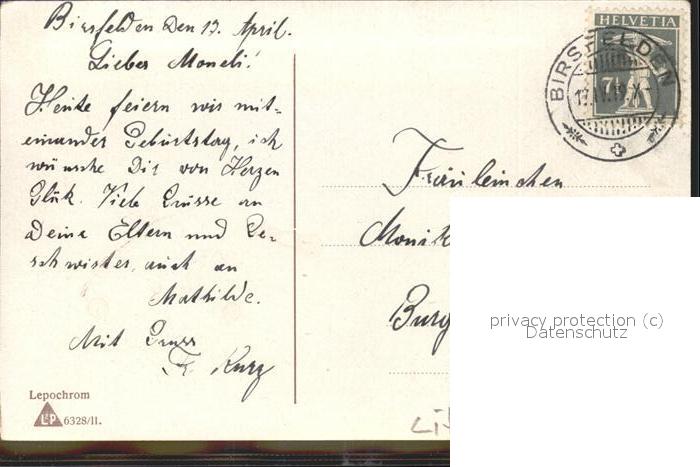 Birsfelden Den 13. April.
Lieber Moneli!
Heute feiern wir mit-
einander Geburtstag, ich
wünsche Dir von Herzen
Glük. Viele Grüsse an
Deine Eltern und Ge-
schwister, auch an
Mathilde.
Mit Gruss
Fr. Kurz
Lepochrom
L&P 6328/II.
HELVETIA
7½
BIRSFELDEN
Fräuleinchen
Monik
Burg
privacy protection (c)
Datenschutz